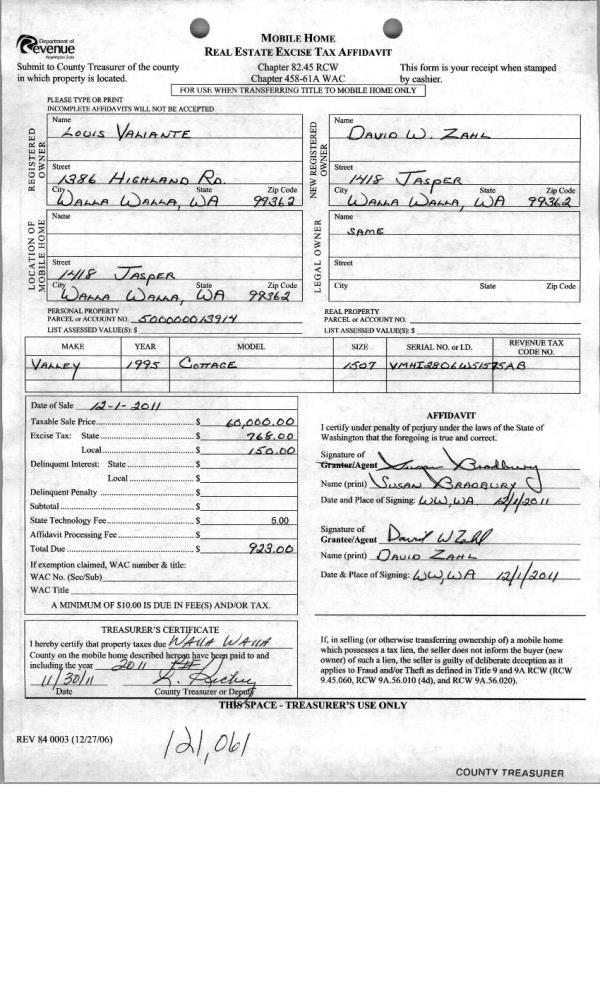 Department of
Revenue
Washington State
MOBILE HOME
REAL ESTATE EXCISE TAX AFFIDAVIT
Submit to County Treasurer of the county
in which property is located.
Chapter 82.45 RCW
Chapter 458-61A WAC
This form is your receipt when stamped
by cashier.
FOR USE WHEN TRANSFERRING TITLE TO MOBILE HOME ONLY
PLEASE TYPE OR PRINT
INCOMPLETE AFFIDAVITS WILL NOT BE ACCEPTED
REGISTERED
OWNER
Name
LOUIS VALIANTE
Street
1386 HIGHLAND RD.
City State Zip Code
WALLA WALLA, WA 99362
NEW REGISTERED
OWNER
Name
DAVID W. ZAHL
Street
1418 JASPER
City State Zip Code
WALLA WALLA, WA 99362
LOCATION OF
MOBILE HOME
Name
Street
1418 JASPER
City State Zip Code
WALLA WALLA, WA 99362
LEGAL OWNER
Name
SAME
Street
City State Zip Code
PERSONAL PROPERTY
PARCEL or ACCOUNT NO. 500000013914
LIST ASSESSED VALUE(S): $
REAL PROPERTY
PARCEL or ACCOUNT NO.
LIST ASSESSED VALUE(S): $
MAKE YEAR MODEL SIZE SERIAL NO. or I.D. REVENUE TAX CODE NO.
VALLEY 1995 COTTAGE 1507 VMHI2806WS1575AB
Date of Sale 12-1-2011
Taxable Sale Price $ 60,000.00
Excise Tax: State $ 768.00
Local $ 150.00
Delinquent Interest: State $
Local $
Delinquent Penalty $
Subtotal $
State Technology Fee $ 5.00
Affidavit Processing Fee $
Total Due $ 923.00
If exemption claimed, WAC number & title:
WAC No. (Sec/Sub)
WAC Title
A MINIMUM OF $10.00 IS DUE IN FEE(S) AND/OR TAX.
AFFIDAVIT
I certify under penalty of perjury under the laws of the State of
Washington that the foregoing is true and correct.
Signature of
Grantor/Agent Susan Bradbury
Name (print) SUSAN BRADBURY
Date and Place of Signing: WW, WA 12/1/2011
Signature of
Grantee/Agent David W Zahl
Name (print) DAVID ZAHL
Date & Place of Signing: WW, WA 12/1/2011
TREASURER'S CERTIFICATE
I hereby certify that property taxes due WALLA WALLA
County on the mobile home described hereon have been paid to and
including the year 2011
11/30/11
Date County Treasurer or Deputy
If, in selling (or otherwise transferring ownership of) a mobile home
which possesses a tax lien, the seller does not inform the buyer (new
owner) of such a lien, the seller is guilty of deliberate deception as it
applies to Fraud and/or Theft as defined in Title 9 and 9A RCW (RCW
9.45.060, RCW 9A.56.010 (4d), and RCW 9A.56.020).
THIS SPACE - TREASURER'S USE ONLY
REV 84 0003 (12/27/06)
121,061
COUNTY TREASURER